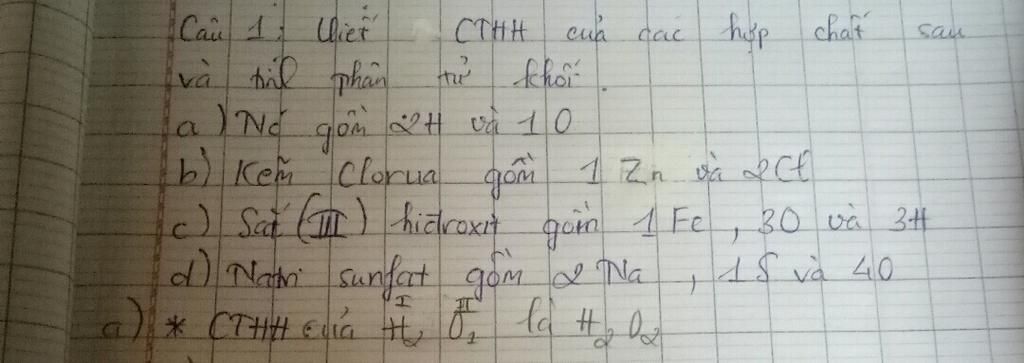 Câu 1: Viết CTHH của các hợp chất sau
và tính phân tử khối.
a) Nc gồm 2H và 1O
b) Kẽm Clorua gồm 1 Zn và 2Cl
c) Sắt (III) hiđroxit gồm 1Fe, 3O và 3H
d) Natri sunfat gồm 2 Na, 1S và 4O
a) * CTHH của H₂ᴵ O₁ᴵᴵ là H₂O₂